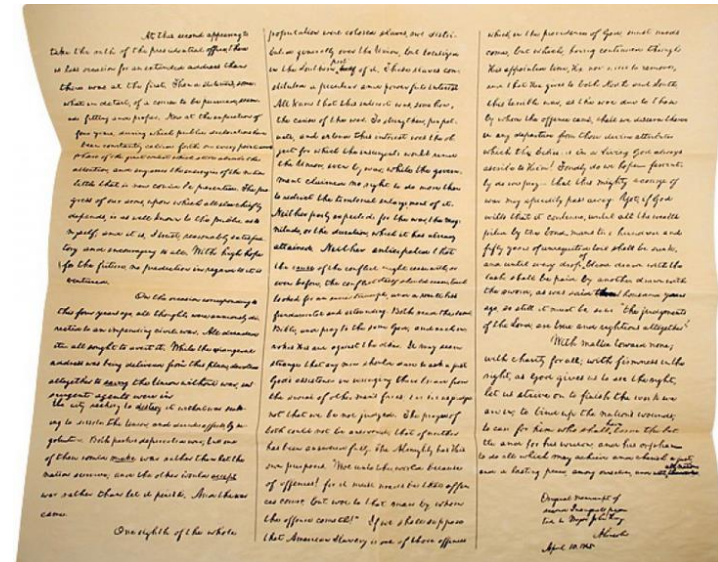 At this second appearing to
take the oath of the presidential office, there
is less occasion for an extended address than
there was at the first. Then a statement, some-
what in detail, of a course to be pursued, seem-
ed fitting and proper. Now, at the expiration of
four years, during which public declarations have
been constantly called forth on every point and
phase of the great contest which still absorbs the
attention, and engrosses the energies of the nation
little that is new could be presented. The pro-
gress of our arms, upon which all else chiefly
depends, is as well known to the public as to
myself; and it is, I trust, reasonably satisfac-
tory and encouraging to all. With high hope
for the future, no prediction in regard to it is
ventured.
On the occasion corresponding to
this four years ago, all thoughts were anxiously di-
rected to an impending civil war. All dreaded
it all sought to avert it. While the inaugeral
address was being delivered from this place, devoted
altogether to saving the Union without war, in
surgent agents were in
the city seeking to destroy it without war seek-
ing to dissole the Union, and divide effects, by ne-
gotiation. Both parties deprecated war; but one
of them would make war rather than let the
nation survive; and the other would accept
war rather than let it perish. And the war
came.
One eighth of the whole
population were colored slaves, not distri-
buted generally over the Union, but localized
in the Southern part of it. These slaves con-
stituted a peculiar and powerful interest.
All knew that this interest was, somehow,
the cause of the war. To strengthen, perpet-
uate, and extend this interest was the ob-
ject for which the insurgents would rend
the Union, even by war; while the govern-
ment claimed no right to do more than
to restrict the territorial enlargement of it.
Neither party expected for the war, the mag-
nitude, or the duration, which it has already
attained. Neither anticipated that
the cause of the conflict might cease with, or
even before, the conflict itself should cease. Each
looked for an easier triumph, and a result less
fundamental and astounding. Both read the same
Bible, and pray to the same God; and each in-
vokes His aid against the other. It may seem
strange that any men should dare to ask a just
God's assistance in wringing their bread from
the sweat of other men's faces; but let us judge
not that we be not judged. The prayers of
both could not be answered; that of neither
has been answered fully. The Almighty has His
own purposes. "Woe unto the world because
of offences! for it must needs be that offen-
ces come; but woe to that man by whom
the offence cometh!" If we shall suppose
that American Slavery is one of those offences
which, in the providence of God, must needs
come, but which, having continued through
His appointed time, He now wills to remove,
and that He gives to both North and South,
this terrible war, as the woe due to those
by whom the offence came, shall we discern therein
any departure from those divine attributes
which the believers in a Living God always
ascribe to Him? Fondly do we hope fervent-
ly do we pray that this mighty scourge of
war may speedily pass away. Yet, if God
wills that it continue, until all the wealth
piled by the bond-man's two hundred and
fifty years of unrequited toil shall be sunk,
and until every drop of blood drawn with the
lash, shall be paid by another drawn with
the sword, as was said three thousand years
ago, so still it must be said "the judgments
of the Lord, are true and righteous altogether"
With malice toward none;
with charity for all; with firmness in the
right, as God gives us to see the right,
let us strive on to finish the work we
are in; to bind up the nation's wounds;
to care for him who shall have borne the bat-
tle, and for his widow, and his orphan
to do all which may achieve and cherish a just,
and a lasting peace, among ourselves, and with all nations
Original manuscript of
second Inaugeral presen-
ted to Major John Hay
A. Lincoln
April 10, 1865